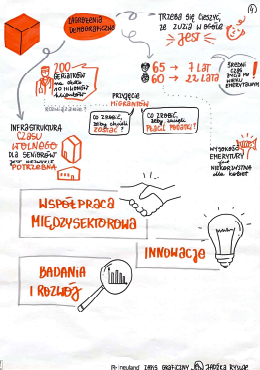 ZAGROŻENIA
DEMOGRAFICZNE
TRZEBA SIĘ CIESZYĆ,
ŻE ZUZIA W OGÓLE
JEST
4
200
GERIATRÓW
NA OKOŁO
10 MILIONÓW
KLIENTÓW
65 → 7 LAT
60 → 22 LATA
ŚREDNI
CZAS
ŻYCIA NA
EMERYTURZE
PRZYJĘCIE
MIGRANTÓW
ROZWIĄZANIE?
CO ZROBIĆ,
ŻEBY CHCIELI
ZOSTAĆ?
CO ZROBIĆ,
ŻEBY CHCIELI
PŁACIĆ PODATKI?
INFRASTRUKTURA
CZASU
WOLNEGO
DLA SENIORÓW
JEST
POTRZEBNA
WYSOKOŚĆ
EMERYTURY
JEST
NIEKORZYSTNA
dla kobiet
WSPÓŁPRACA
MIĘDZYSEKTOROWA
INNOWACJE
BADANIA
I ROZWÓJ
neuland ZAPIS GRAFICZNY